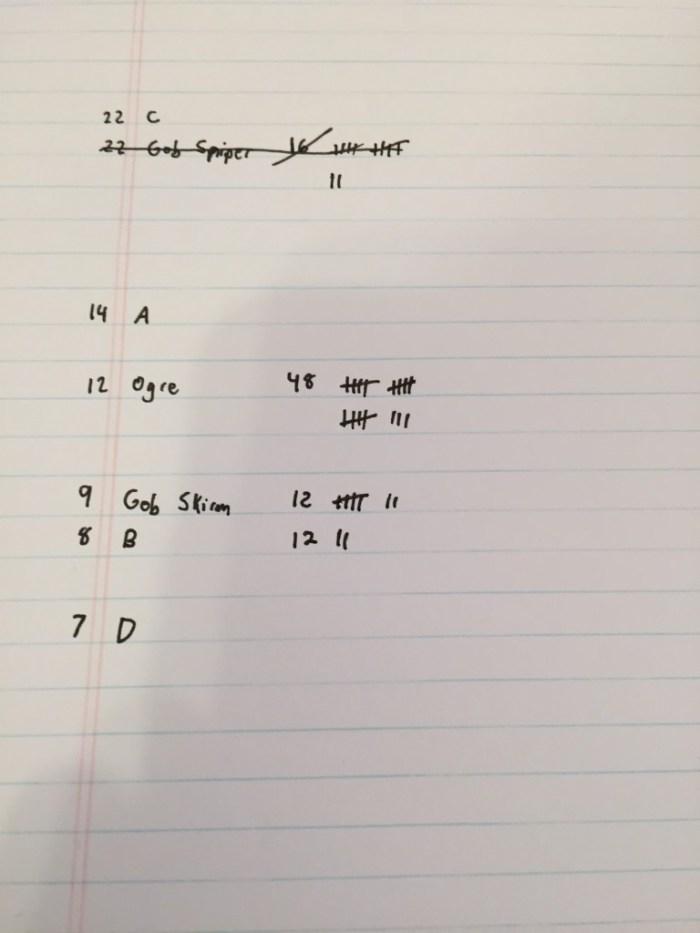 22 C
22 Gob Sniper 16 𝍸 𝍸
||
14 A
12 Ogre 48 𝍸 𝍸
𝍸 |||
9 Gob Skirm 12 𝍸 ||
8 B 12 ||
7 D